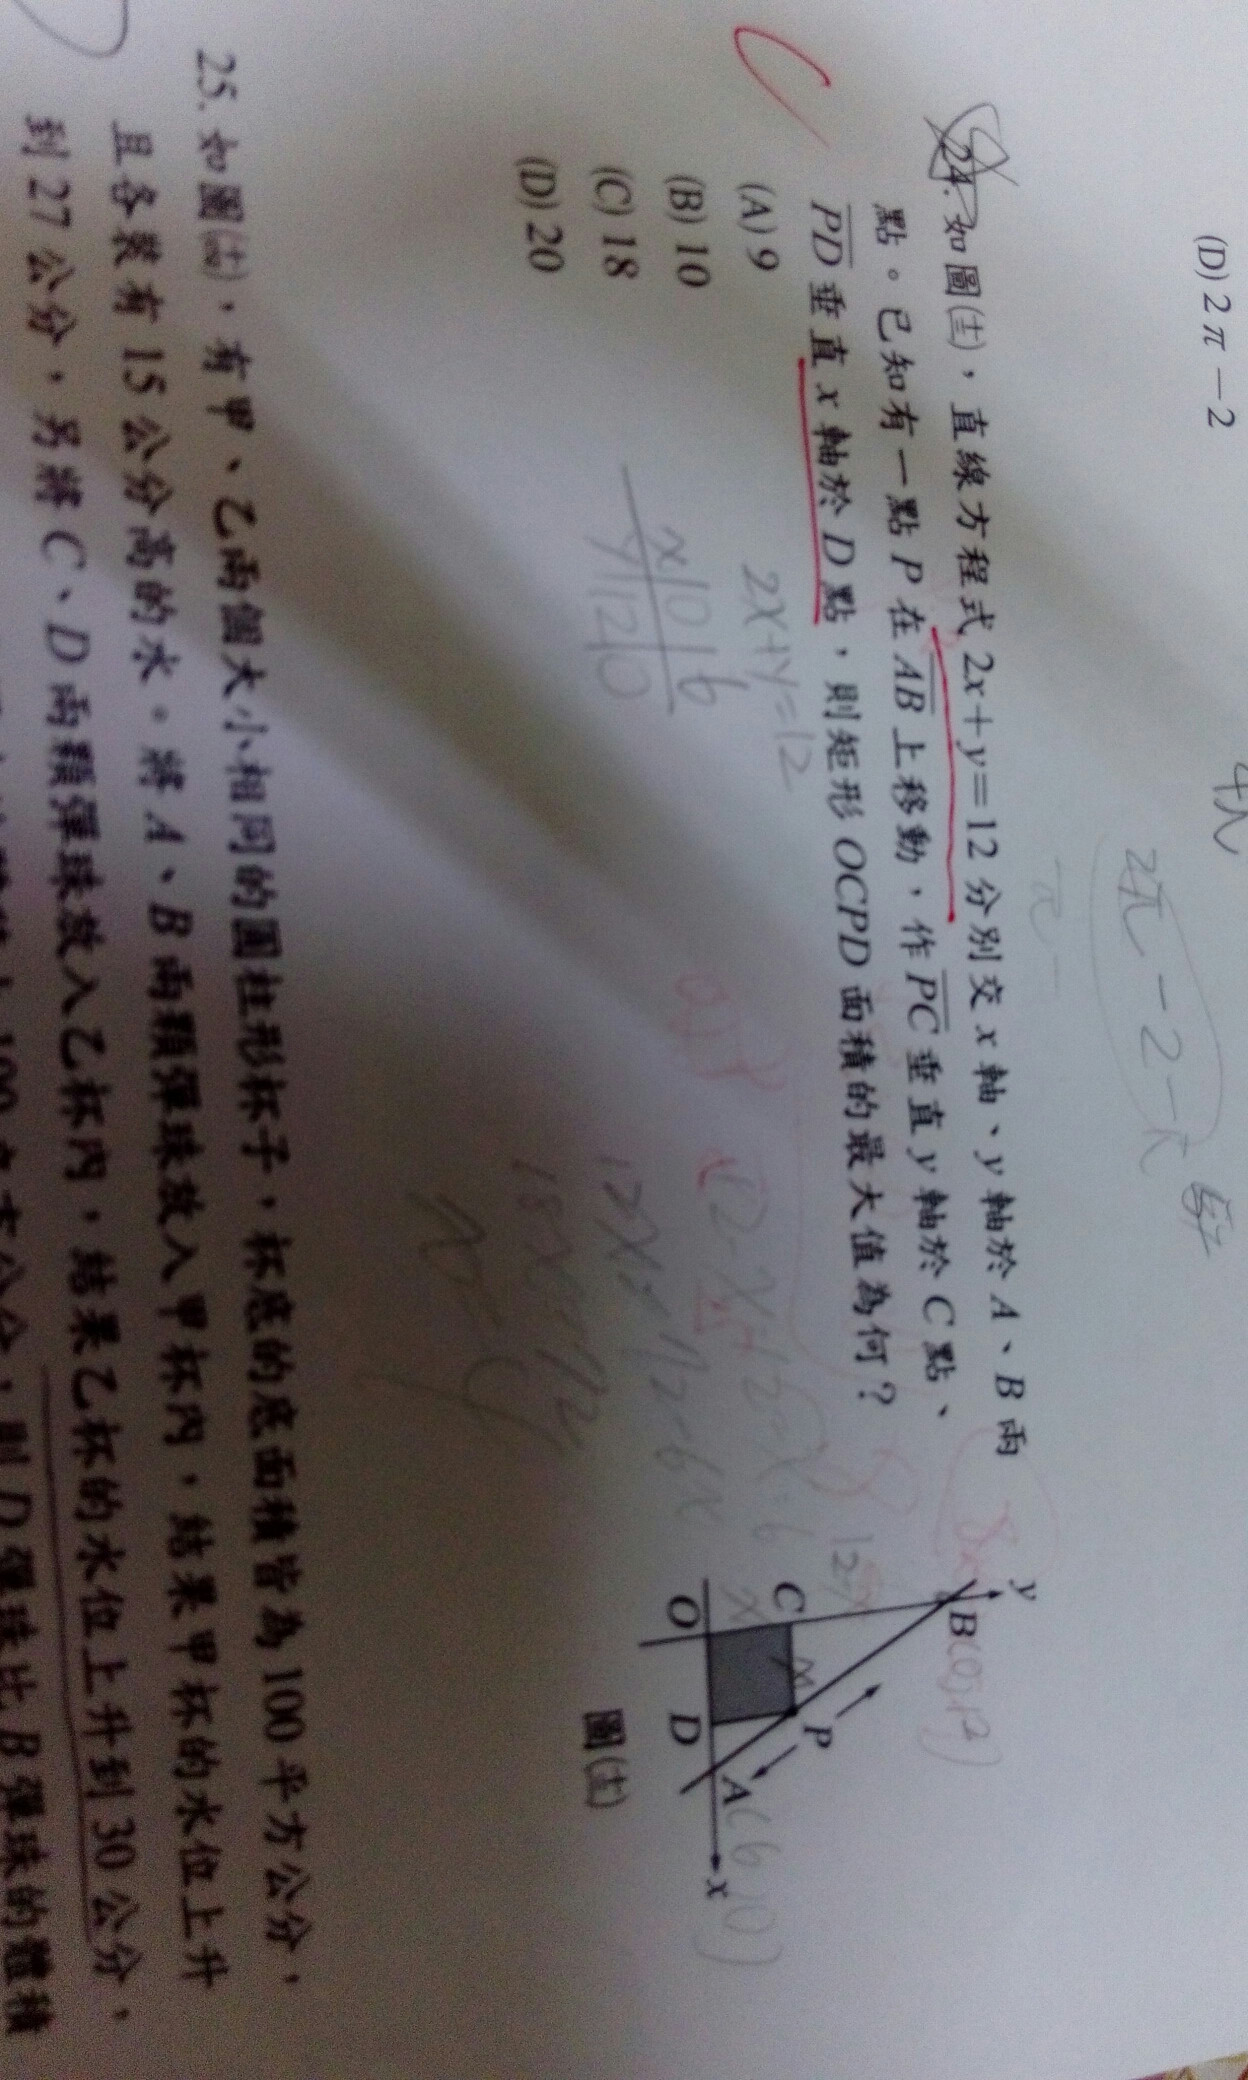 (D) 2π－2
24. 如圖(十三)，直線方程式 2x＋y＝12 分別交 x 軸、y 軸於 A、B 兩
點。已知有一點 P 在 AB 上移動，作 PC 垂直 y 軸於 C 點、
PD 垂直 x 軸於 D 點，則矩形 OCPD 面積的最大值為何？
(A) 9
(B) 10
(C) 18
(D) 20
2x+y=12
x 0 6
y 12 0
y
B(0,12)
C
P
O
D
A(6,0)
x
圖(十三)
25. 如圖(十四)，有甲、乙兩個大小相同的圓柱形杯子，杯底的底面積皆為 100 平方公分，
且各裝有 15 公分高的水。將 A、B 兩顆彈珠放入甲杯內，結果甲杯的水位上升
到 27 公分，另將 C、D 兩顆彈珠放入乙杯內，結果乙杯的水位上升到 30 公分，
則 D 彈珠比 B 彈珠的體積